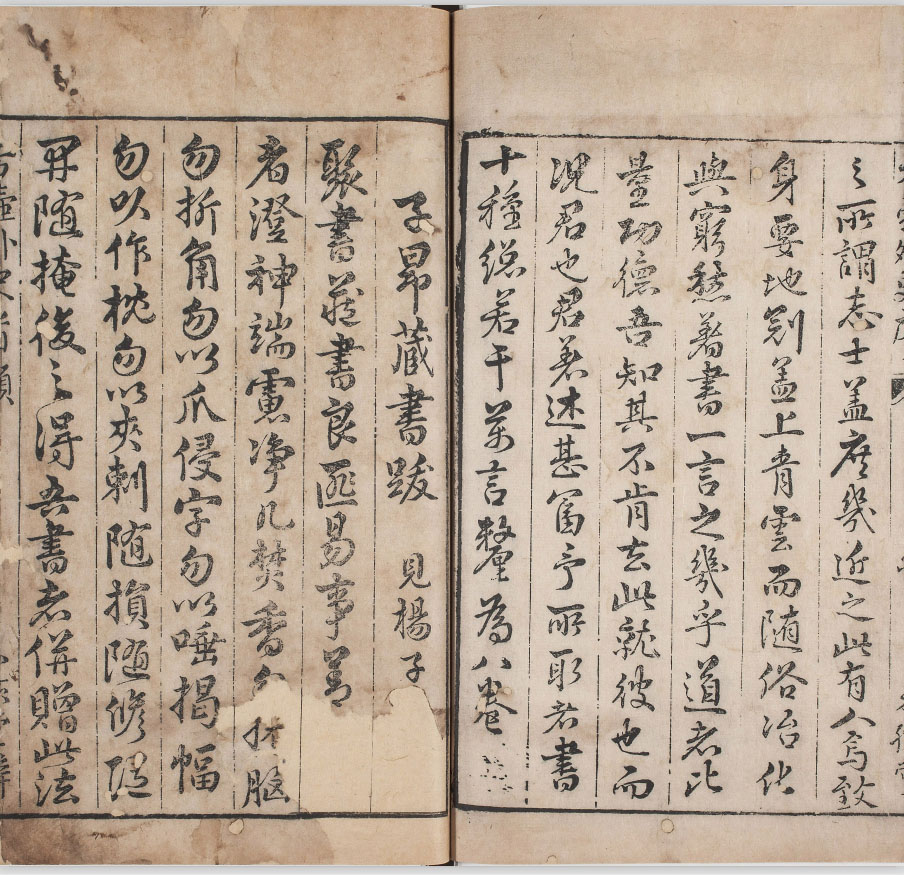 之所謂志士蓋庶幾近之此有人焉致
身要地剡蓋上青雲而随俗冶化
與窮愁著書一言之幾乎道者比
量功德吾知其不肯去此就彼也而
況君也君著述甚富予所取者書
十種總若干萬言釐為八卷
子昂藏書跋 見楊子
聚書藏書良匪易事善
者澄神端慮净几焚香勿 折腦
勿折角勿以爪侵字勿以唾揭幅
勿以作枕勿以夾刺随損随修随
開随掩後之得吾書者併贈此法